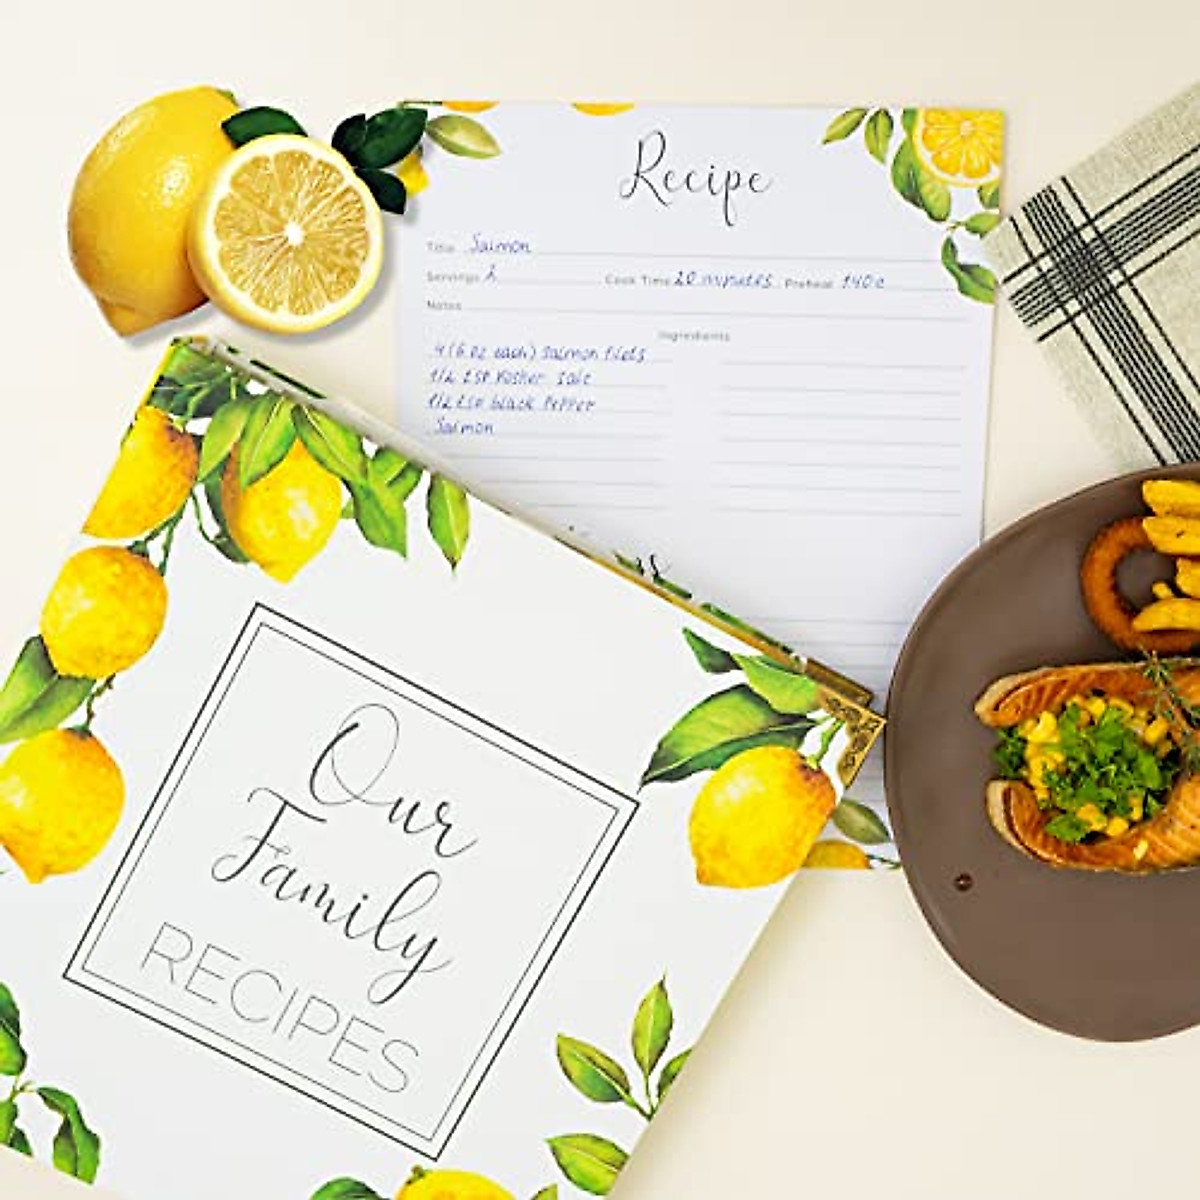 Recipe
Title Salmon
Servings 2 Cook Time 20 minutes Preheat 140c
Notes
Ingredients
4 (6 oz each) Salmon filets
1/2 tsp Kosher salt
1/2 tsp black Pepper
Salmon
Our
Family
RECIPES